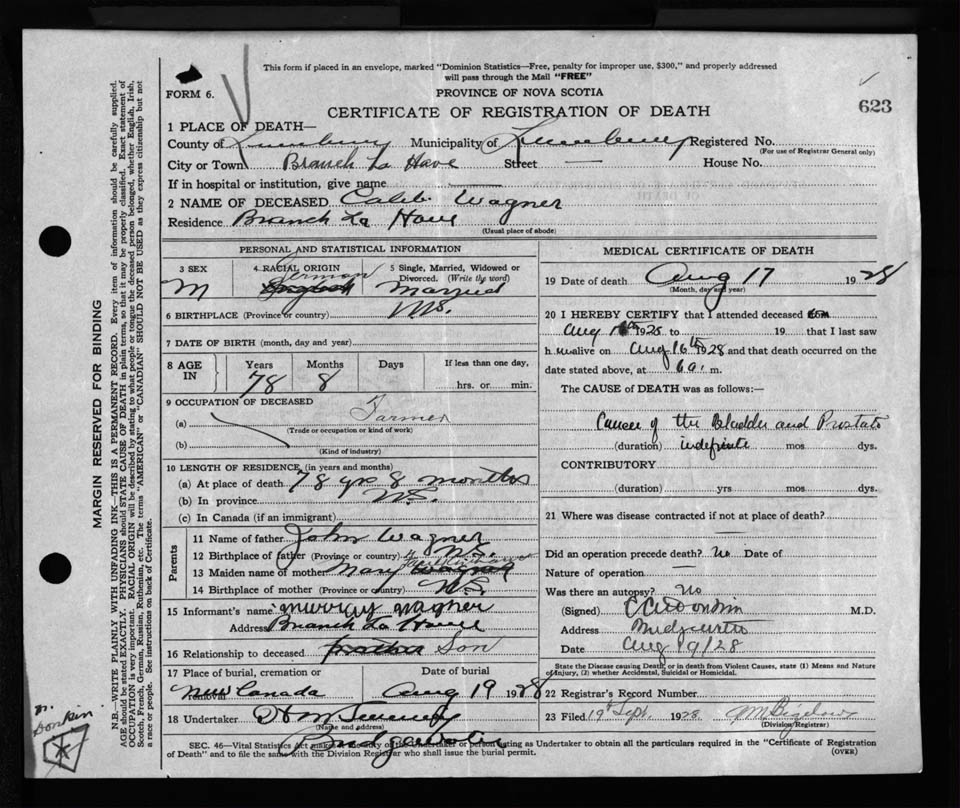 This form if placed in an envelope, marked "Dominion Statistics—Free, penalty for improper use, $300," and properly addressed
will pass through the Mail "FREE"
FORM 6.
PROVINCE OF NOVA SCOTIA
623
CERTIFICATE OF REGISTRATION OF DEATH
1 PLACE OF DEATH—
County of Lunenburg Municipality of Lunenburg Registered No.
(For use of Registrar General only)
City or Town Branch La Have Street — House No.
If in hospital or institution, give name —
2 NAME OF DECEASED Caleb Wagner
Residence Branch La Have
(Usual place of abode)
PERSONAL AND STATISTICAL INFORMATION
3 SEX M
4 RACIAL ORIGIN German English
5 Single, Married, Widowed or Divorced. (Write the word) Married
6 BIRTHPLACE (Province or country) N.S.
7 DATE OF BIRTH (month, day and year)
8 AGE IN Years Months Days If less than one day,
78 8 hrs. or min.
9 OCCUPATION OF DECEASED
(a) Farmer
(Trade or occupation or kind of work)
(b)
(Kind of industry)
10 LENGTH OF RESIDENCE (in years and months)
(a) At place of death 78 yrs 8 months
(b) In province N.S.
(c) In Canada (if an immigrant)
Parents
11 Name of father John Wagner
12 Birthplace of father (Province or country) N.S.
13 Maiden name of mother Mary Wagner
14 Birthplace of mother (Province or country) N.S.
15 Informant's name Murray Wagner
Address Branch La Have
16 Relationship to deceased brother Son
17 Place of burial, cremation or removal New Canada
Date of burial Aug 19 1928
18 Undertaker
(Name and address)
Bridgewater
MEDICAL CERTIFICATE OF DEATH
19 Date of death Aug 17 1928
(Month, day and year)
20 I HEREBY CERTIFY that I attended deceased from
Aug 1928 to 19 that I last saw
h alive on Aug 16th 1928 and that death occurred on the
date stated above, at 6 a. m.
The CAUSE of DEATH was as follows:—
Cancer of the Bladder and Prostate
(duration) indefinite mos dys.
CONTRIBUTORY
(duration) yrs mos dys.
21 Where was disease contracted if not at place of death?
—
Did an operation precede death? No Date of
Nature of operation —
Was there an autopsy? No
(Signed) M.D.
Address
Date Aug 19/28
State the Disease causing Death, or in death from Violent Causes, state (1) Means and Nature
of Injury, (2) whether Accidental, Suicidal or Homicidal.
22 Registrar's Record Number
23 Filed 19 Sept. 1928 Bigelow
(Division Registrar)
SEC. 46—Vital Statistics Act makes it the duty of the Undertaker or person acting as Undertaker to obtain all the particulars required in the "Certificate of Registration
of Death" and to file the same with the Division Registrar who shall issue the burial permit.
(OVER)
MARGIN RESERVED FOR BINDING
N.B.—WRITE PLAINLY WITH UNFADING INK—THIS IS A PERMANENT RECORD. Every item of information should be carefully supplied.
AGE should be stated EXACTLY. PHYSICIANS should STATE CAUSE OF DEATH in plain terms, so that it may be properly classified. Exact statement of
OCCUPATION is very important. RACIAL ORIGIN will be described by stating to what people or tongue the deceased person belonged, whether English, Irish,
Scotch, French, German, Russian, Ruthenian, etc. The terms "AMERICAN" or "CANADIAN" SHOULD NOT BE USED as they express citizenship but not
a race or people. See instructions on back of Certificate.
Donkin